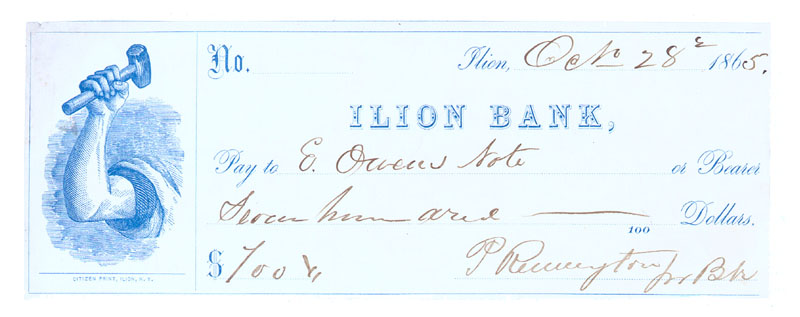 No.
Ilion, Oct 28 1865.
ILION BANK,
Pay to E. Owens Note or Bearer
Seven hundred Dollars.
100
$ 700
P Remington
CITIZEN PRINT, ILION, N. Y.